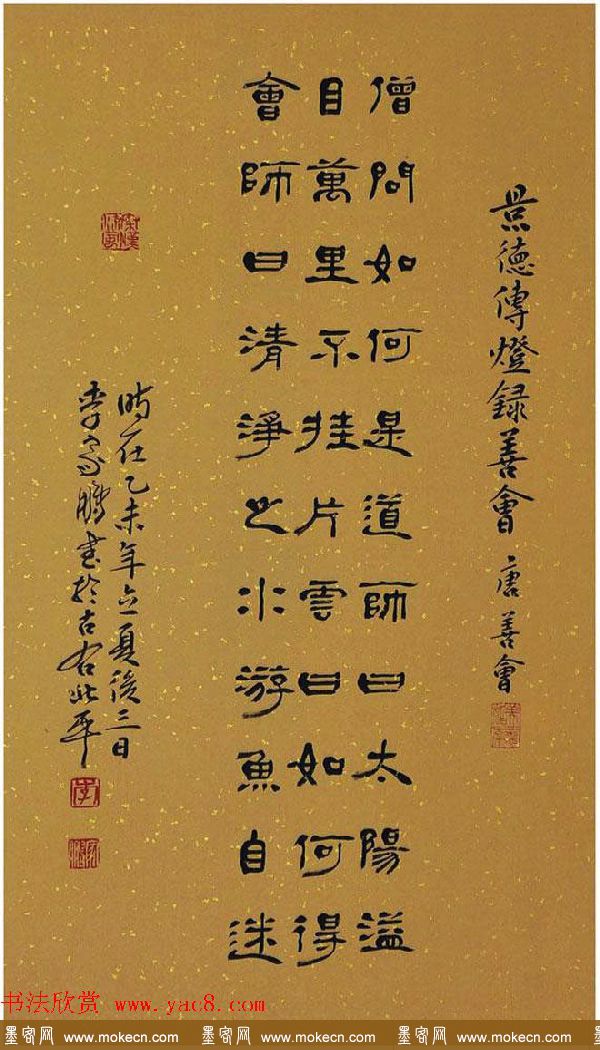 景德傳燈録善會 唐 善會
僧問如何是道師曰太陽溢
目萬里不挂片雲曰如何得
會師曰清淨之水游魚自迷
時在乙未年立夏後三日
李家鵬書於古右北平
书法欣赏 www.yac8.com
墨客网 www.mokecn.com 墨客网 www.mokecn.com 墨客网 www.mokecn.com